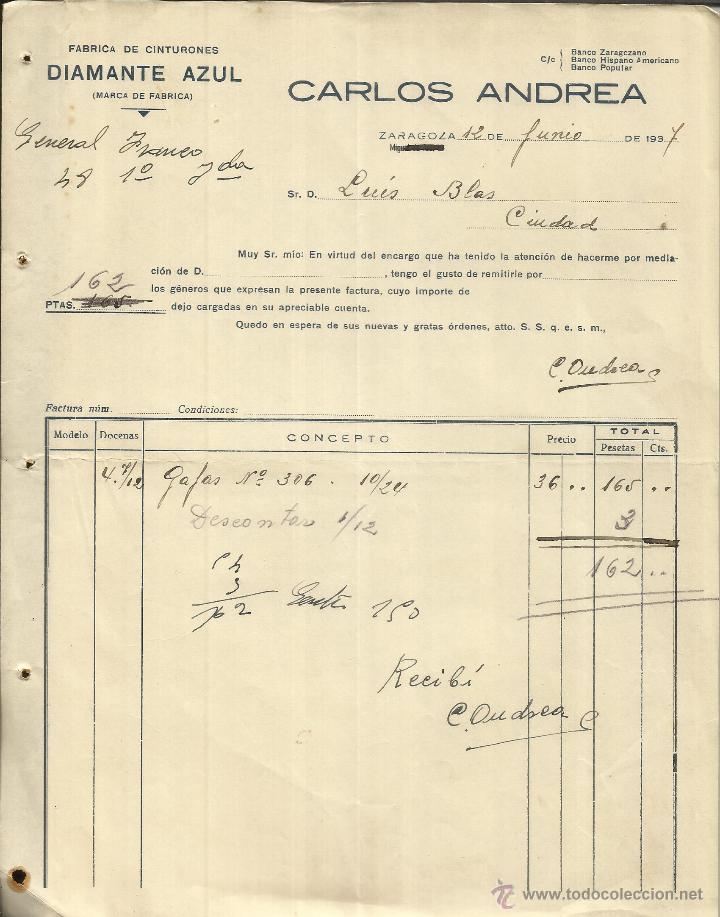 FABRICA DE CINTURONES
DIAMANTE AZUL
(MARCA DE FABRICA)
C/c
Banco Zaragozano
Banco Hispano Americano
Banco Popular
CARLOS ANDREA
ZARAGOZA 12 DE Junio DE 1937
General Franco
48 1º
Sr. D. Luis Blas
Ciudad
Muy Sr. mío: En virtud del encargo que ha tenido la atención de hacerme por media-
ción de D. , tengo el gusto de remitirle por
los géneros que expresan la presente factura, cuyo importe de
162
PTAS. 165 dejo cargadas en su apreciable cuenta.
Quedo en espera de sus nuevas y gratas órdenes, atto. S. S. q. e. s. m.,
C. Andrea
Factura núm. Condiciones:
Modelo Docenas CONCEPTO Precio TOTAL
Pesetas Cts.
4 7/12 Gafas Nº 306 . 10/24 36 .. 165 ..
Descontar 1/12 3
162 ..
150
Recibí
C. Andrea
www.todocoleccion.net